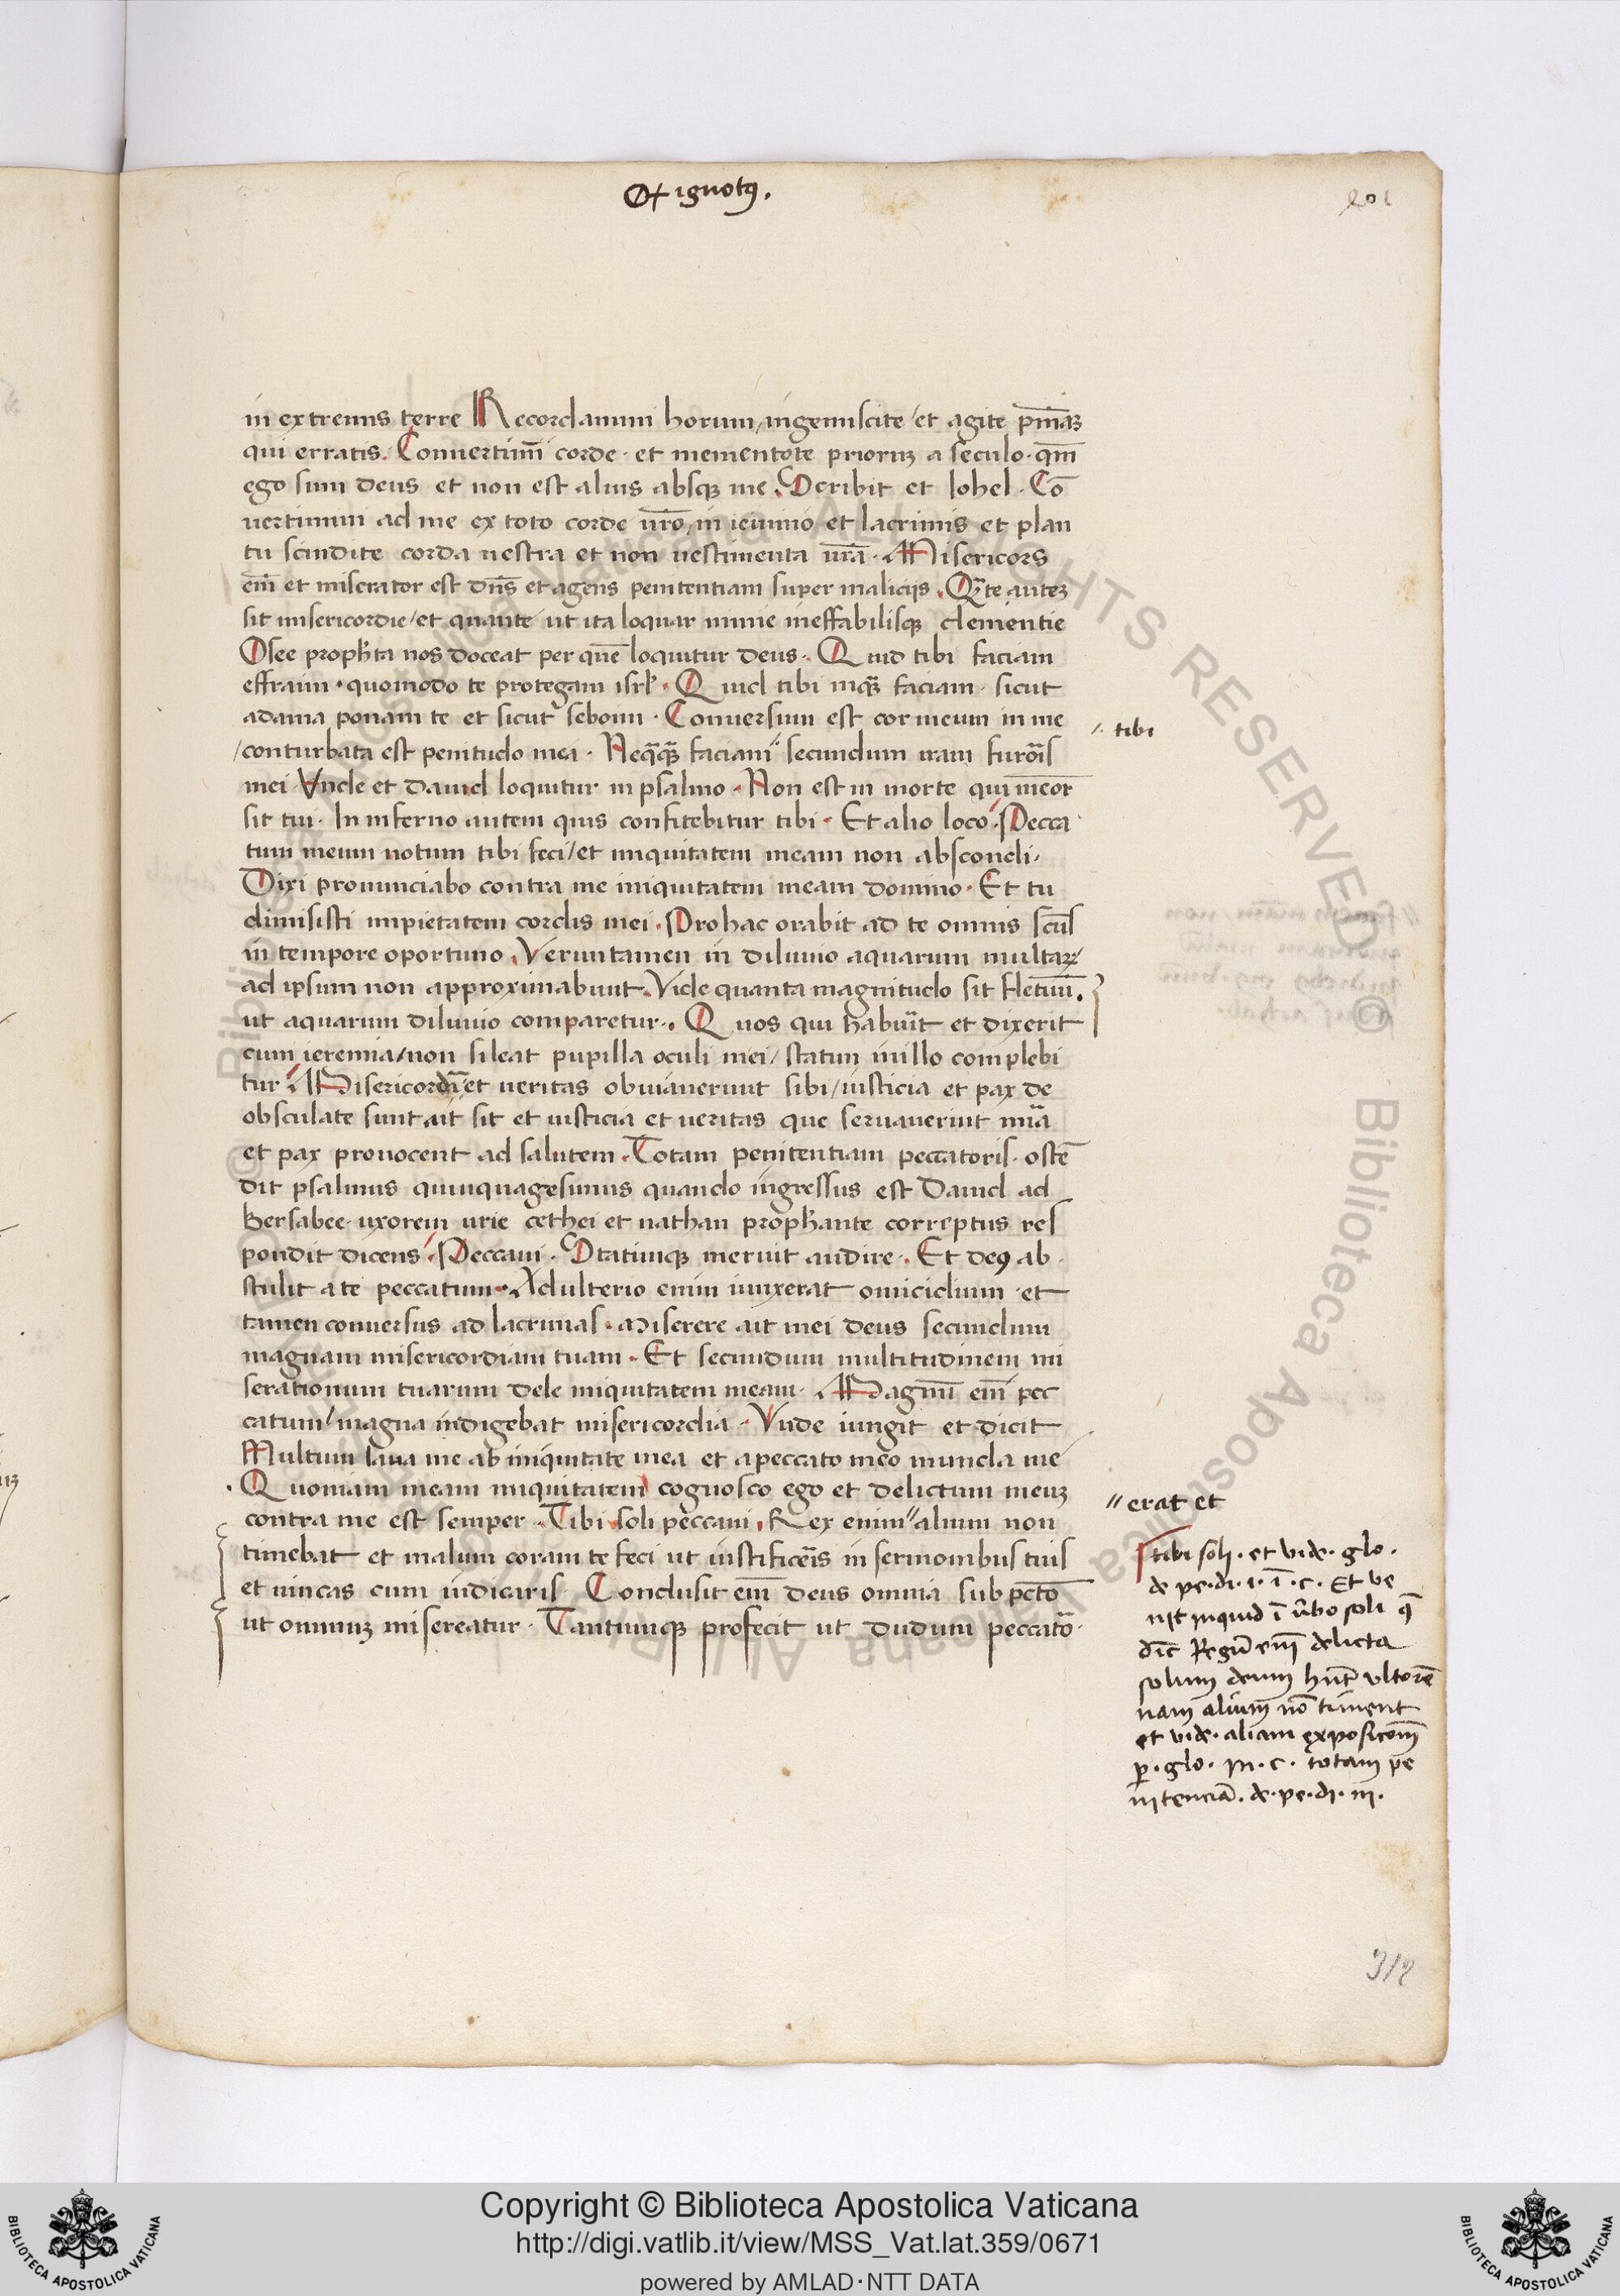 ignotꝰ.
201
in extremis terre Recordamini horum, ingemiscite / et agite pn̄iaꝫ
qui erratis. Conuertimī corde · et mementote prioruꝫ a seculo · qm̄
ego sum deus et non est alius absqꝫ me. Scribit et Iohel · Cō
uertimini ad me ex toto corde ur̄o, in ieiunio et lacrimis et plan
tu scindite corda uestra et non uestimenta ur̄a · Misericors
em̄ et miserator est dn̄s et agens penitentiam super malicijs. Qn̄te auteꝫ
sit misericordie / et quante ut ita loquar nimie ineffabilisqꝫ clementie
Osee proph̄ta nos doceat per quē loquitur deus · Quid tibi faciam
effraim · quomodo te protegam isrl̄ · Quid tibi inqꝫ faciam · sicut
adama ponam te et sicut seboim · Conuersum est cor meum in me
/ conturbata est penitudo mea · Neqꝗꝫ faciam" secundum iram furor̄is
" tibi
mei · Vnde et Dauid loquitur in psalmo · Non est in morte qui memor
sit tui · In inferno autem quis confitebitur tibi · Et alio loco · Pecca
tum meum notum tibi feci / et iniquitatem meam non abscondi /
Dixi pronunciabo contra me iniquitatem meam domino · Et tu
dimisisti impietatem cordis mei. Pro hac orabit ad te omnis sc̄us
in tempore oportuno. Veruntamen in diluuio aquarum multaꝝ
ad ipsum non approximabunt. Vide quanta magnitudo sit fletuū.
ut aquarum diluuio comparetur. Quos qui habuīt et dixerit
cum ieremia / non sileat pupilla oculi mei / statim in illo complebi
tur · Misericordīa et ueritas obuiauerunt sibi / iusticia et pax de
obsculate sunt aīt sit et iusticia et ueritas que seruauerint mīa
et pax prouocent ad salutem · Totam penitentiam peccatoris · ostē
dit psalmus quinquagesimus quando ingressus est Dauid ad
Bersabee · uxorem urie cethei et nathan proph̄ante correptus res
pondit dicens · Peccaui · Statimqꝫ meruit audire · Et deꝰ ab
stulit a te peccatum · Adulterio enim iunxerat omicidium et
tamen conuersus ad lacrimas · Miserere ait mei deus secundum
magnam misericordiam tuam · Et secundum multitudinem mi
serationum tuarum dele iniquitatem meam · Magnū em̄ pec
catum / magna indigebat misericordia · Vnde iungit et dicit
Multum laua me ab iniquitate mea et a peccato meo munda me
· Quoniam meam iniquitatem cognosco ego et delictum meuꝫ
contra me est semper · Tibi soli peccaui. Rex enim" alium non
" erat et
timebat et malum coram te feci ut iustificēis in sermonibus tuis
et uincas cum iudicaris · Conclusit em̄ deus omnia sub pctō
ut omniuꝫ misereatur · Tantumqꝫ profecit ut dudum peccatō ·
tibi soli · et vide · glo ·
de pe · di · i · ī · c · Et ve
nit inquid ī v̄bo soli q̄
dīc Regū em̄ delicta
solum deum hn̄t vltorē
nam alium nō timent
et vide · aliam exposicōm̄
ꝑ · glo · in · c · totam pe
nitenciā · de · pe · di · iii ·
312
Copyright © Biblioteca Apostolica Vaticana
http://digi.vatlib.it/view/MSS_Vat.lat.359/0671
powered by AMLAD·NTT DATA
BIBLIOTECA APOSTOLICA VATICANA
BIBLIOTECA APOSTOLICA VATICANA